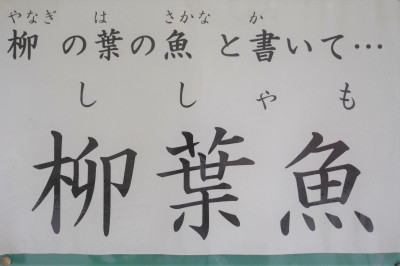 やなぎ は さかな か
柳の葉の魚と書いて…
ししゃも
柳葉魚